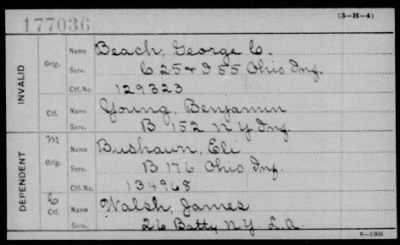 177036
(3-H-4)
INVALID
Orig. Name Beach, George C.
Serv. C 25 & I 55 Ohio Inf.
Ctf. No. 129323
Ctf. Name Young, Benjamin
Serv. B 152 N Y Inf.
DEPENDENT
M
Orig. Name Bushawn, Eli
Serv. B 176 Ohio Inf.
Ctf. No. 134968
C
Ctf. Name Walsh, James
Serv. 26 Batty N Y L.A.